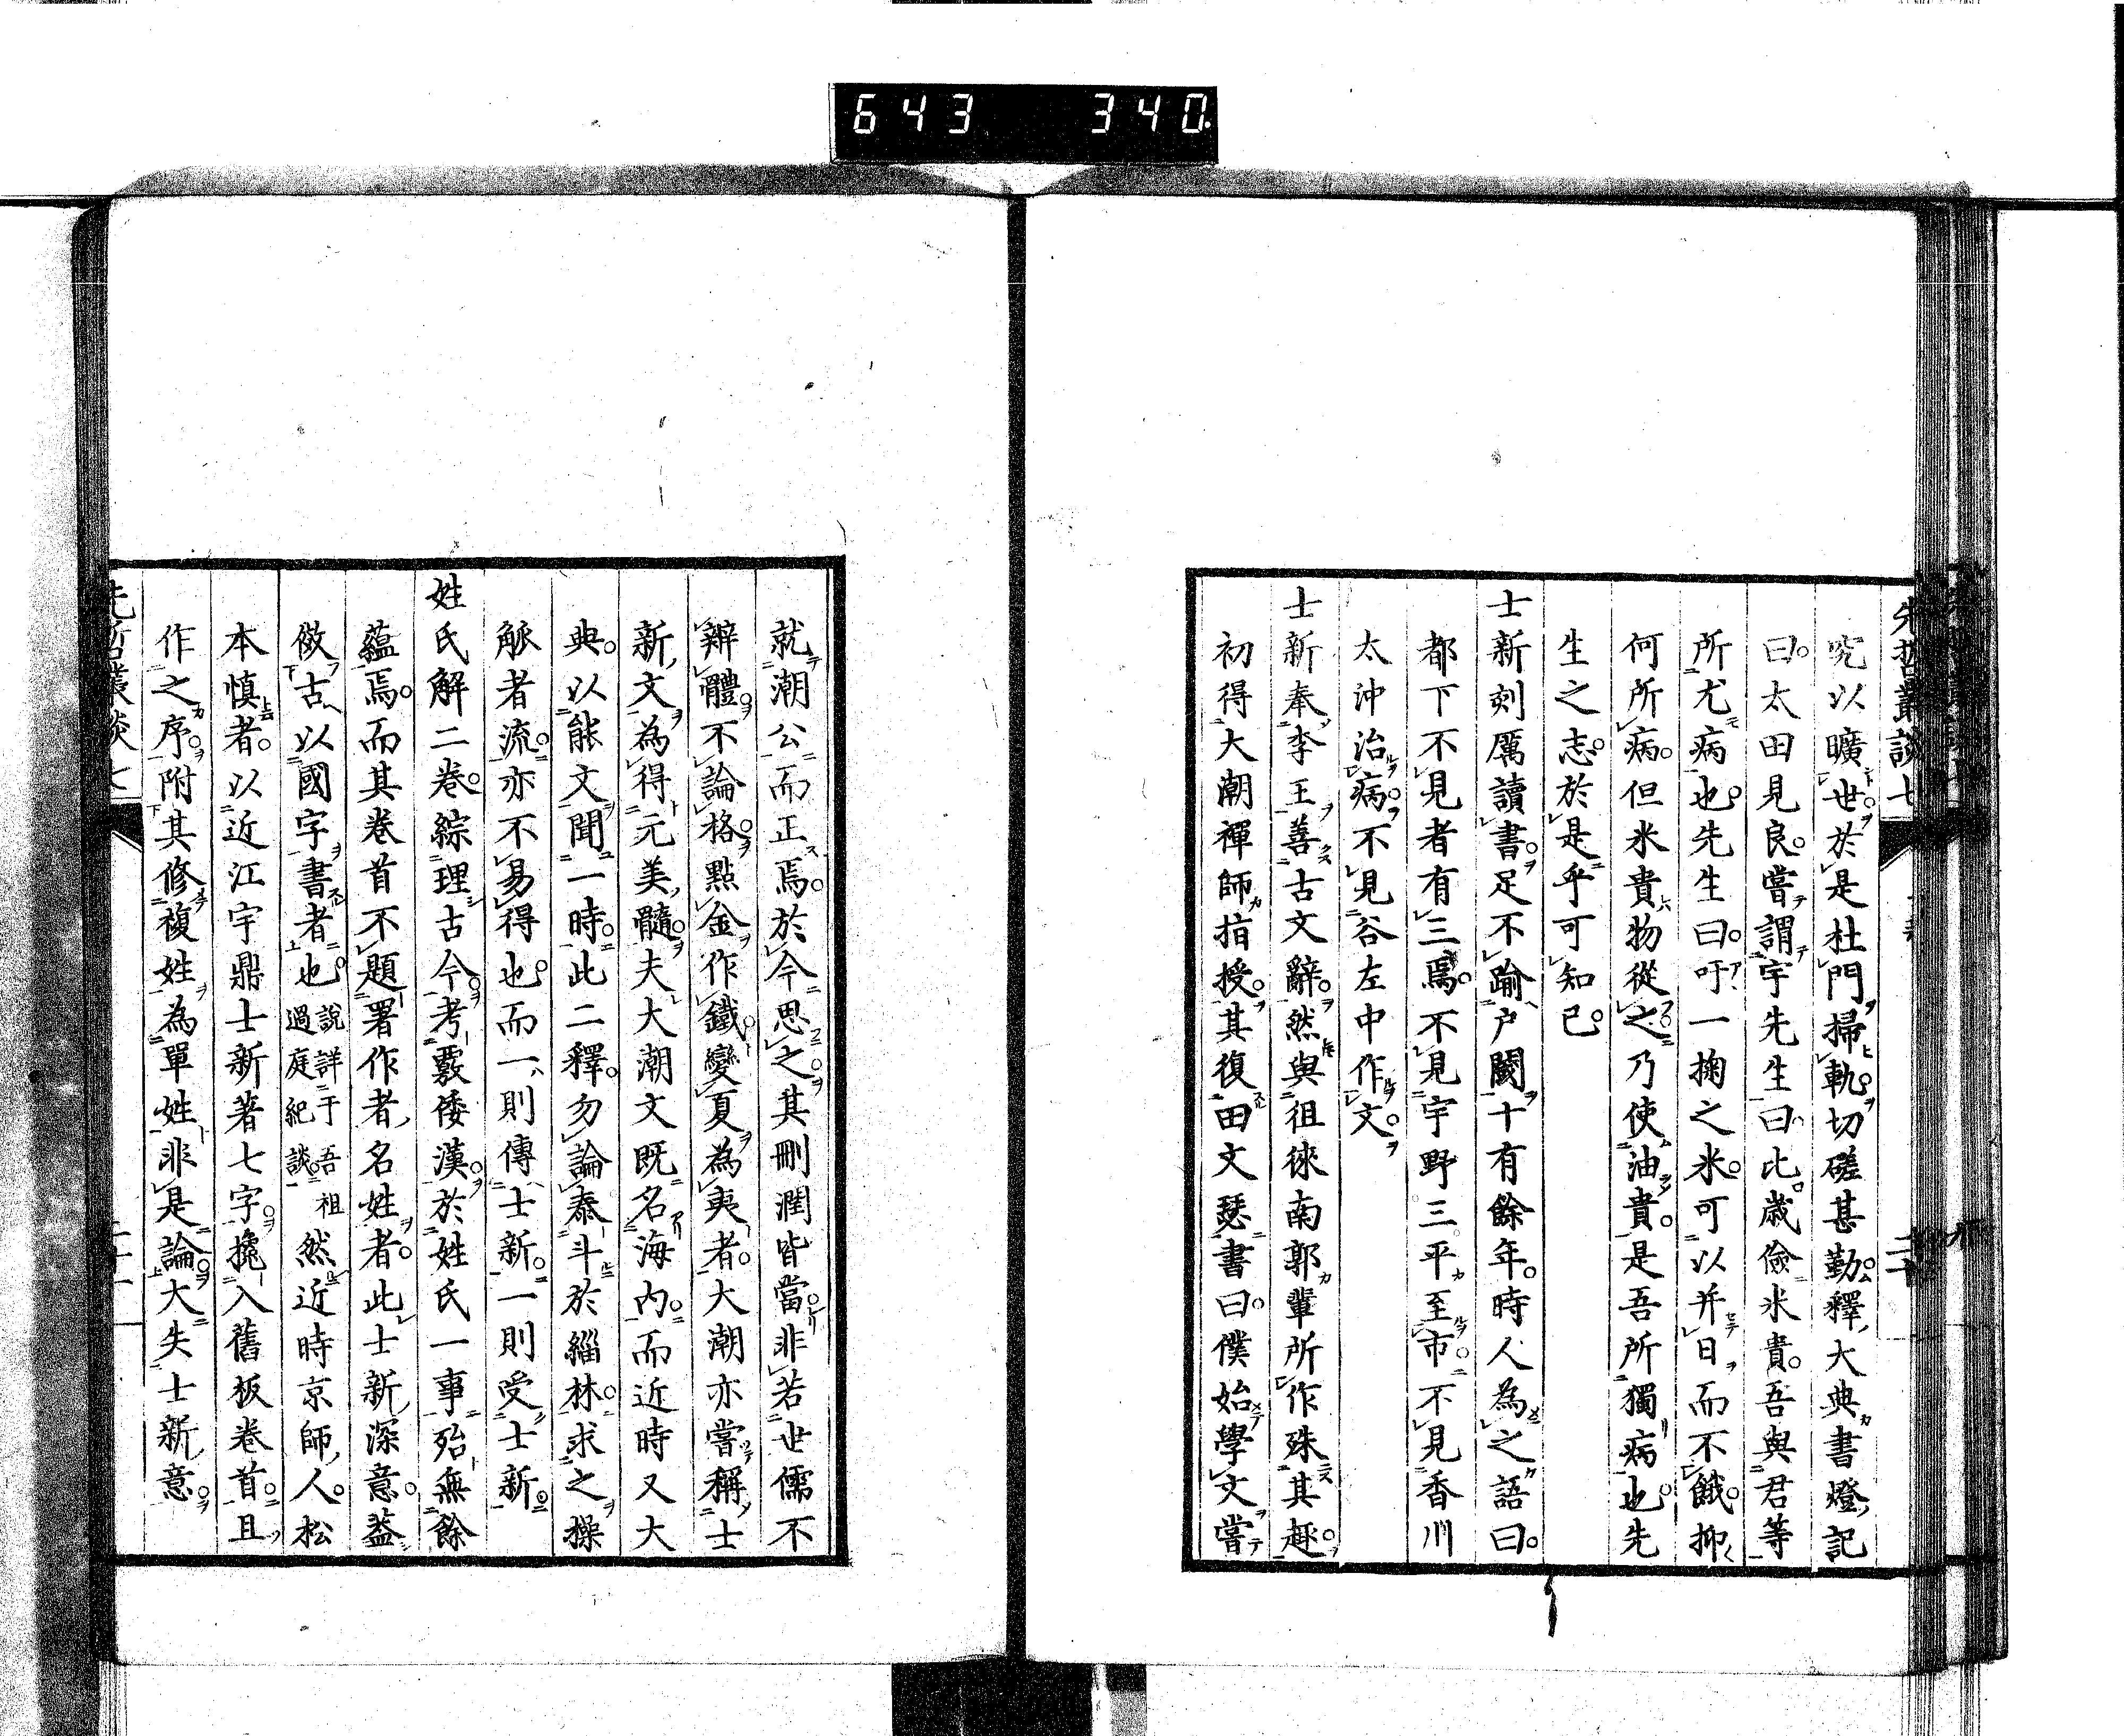 643 340.
先哲叢談七
究以曠世於是杜門掃軌切磋甚勤釋大典書燈記
曰太田見良嘗謂宇先生曰比歲儉米貴吾與君等
所尤病也先生曰吁一掬之米可以并日而不餓抑
何所病但米貴物從之乃使油貴是吾所獨病也先
生之志於是乎可知已
士新刻厲讀書足不踰戶閾十有餘年時人為之語曰
都下不見者有三焉不見宇野三平至市不見香川
太沖治病不見谷左中作文
士新奉李王善古文辭然與徂徠南郭輩所作殊其趣
初得大潮禪師指授其復田文瑟書曰僕始學文嘗
就潮公而正焉於今思之其刪潤皆當非若世儒不
辨體不論格點金作鐵變夏為夷者大潮亦嘗稱士
新文為得元美髓夫大潮文既名海內而近時又大
典以能文聞一時此二釋勿論泰斗於緇林求之操
觚者流亦不易得也而一則傳士新一則受士新
姓氏解二卷綜理古今考覈倭漢於姓氏一事殆無餘
蘊焉而其卷首不題署作者名姓者此士新深意蓋
倣古以國字書者也說詳于吾祖過庭紀談然近時京師人松
本慎者以近江宇鼎士新著七字攙入舊板卷首且
作之序附其修複姓為單姓非是論大失士新意
先哲叢談七